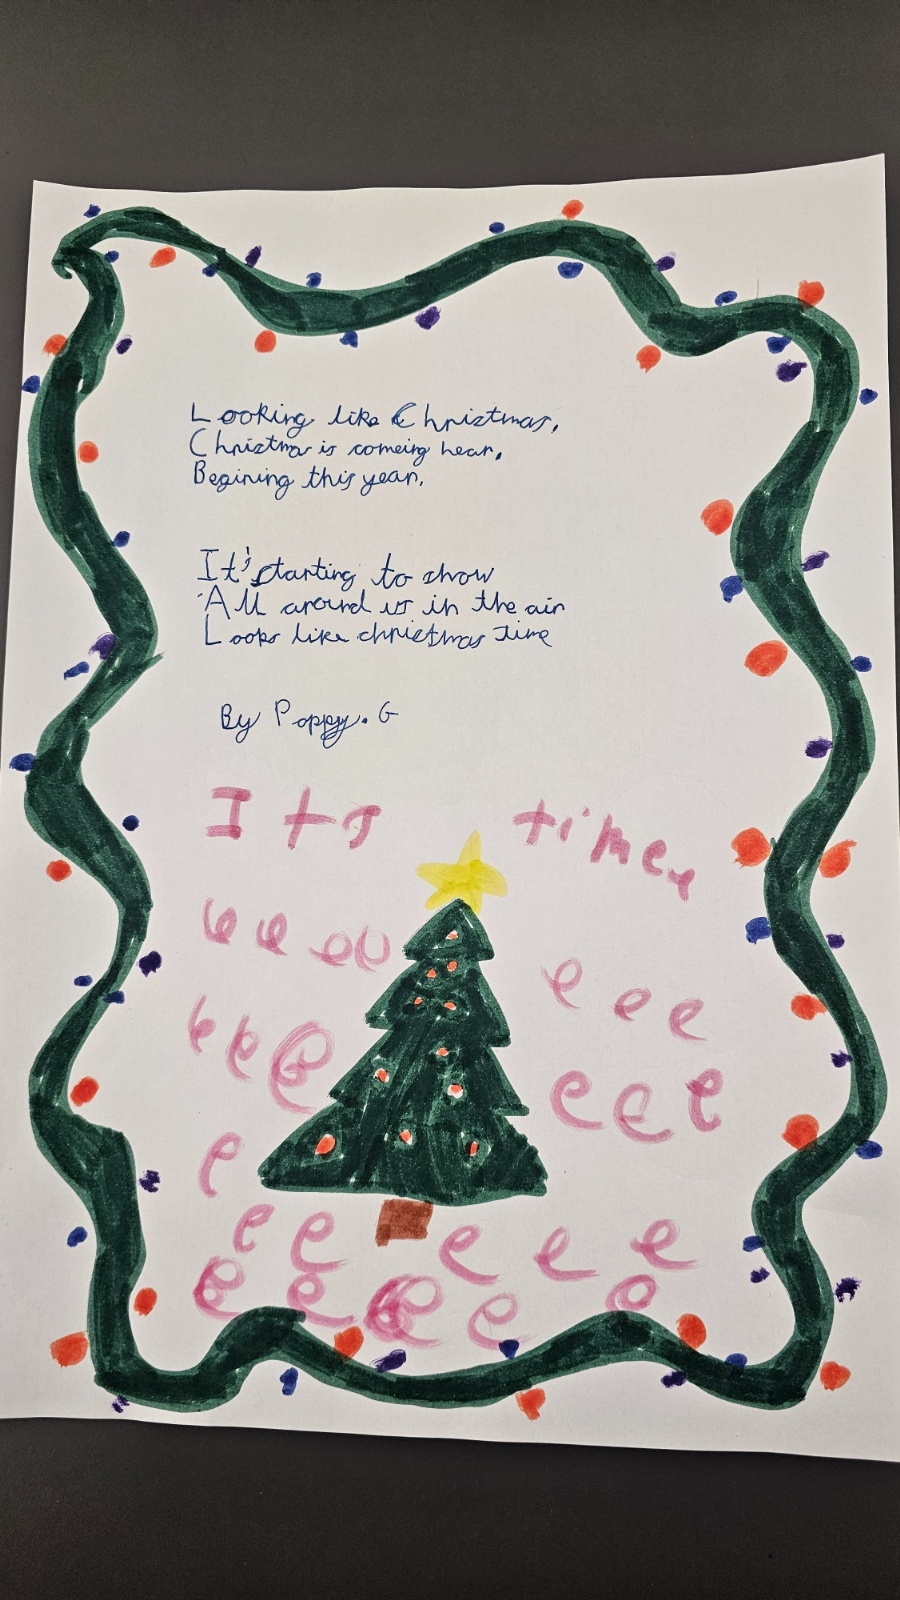 Looking like Christmas,
Christmas is comeing hear,
Begining this year,
It's starting to show
All around us in the air
Looks like christmas time
By Poppy. G
Its time
e e e e
e e e
e e e
e e e
e
e e e e e
e e e e e